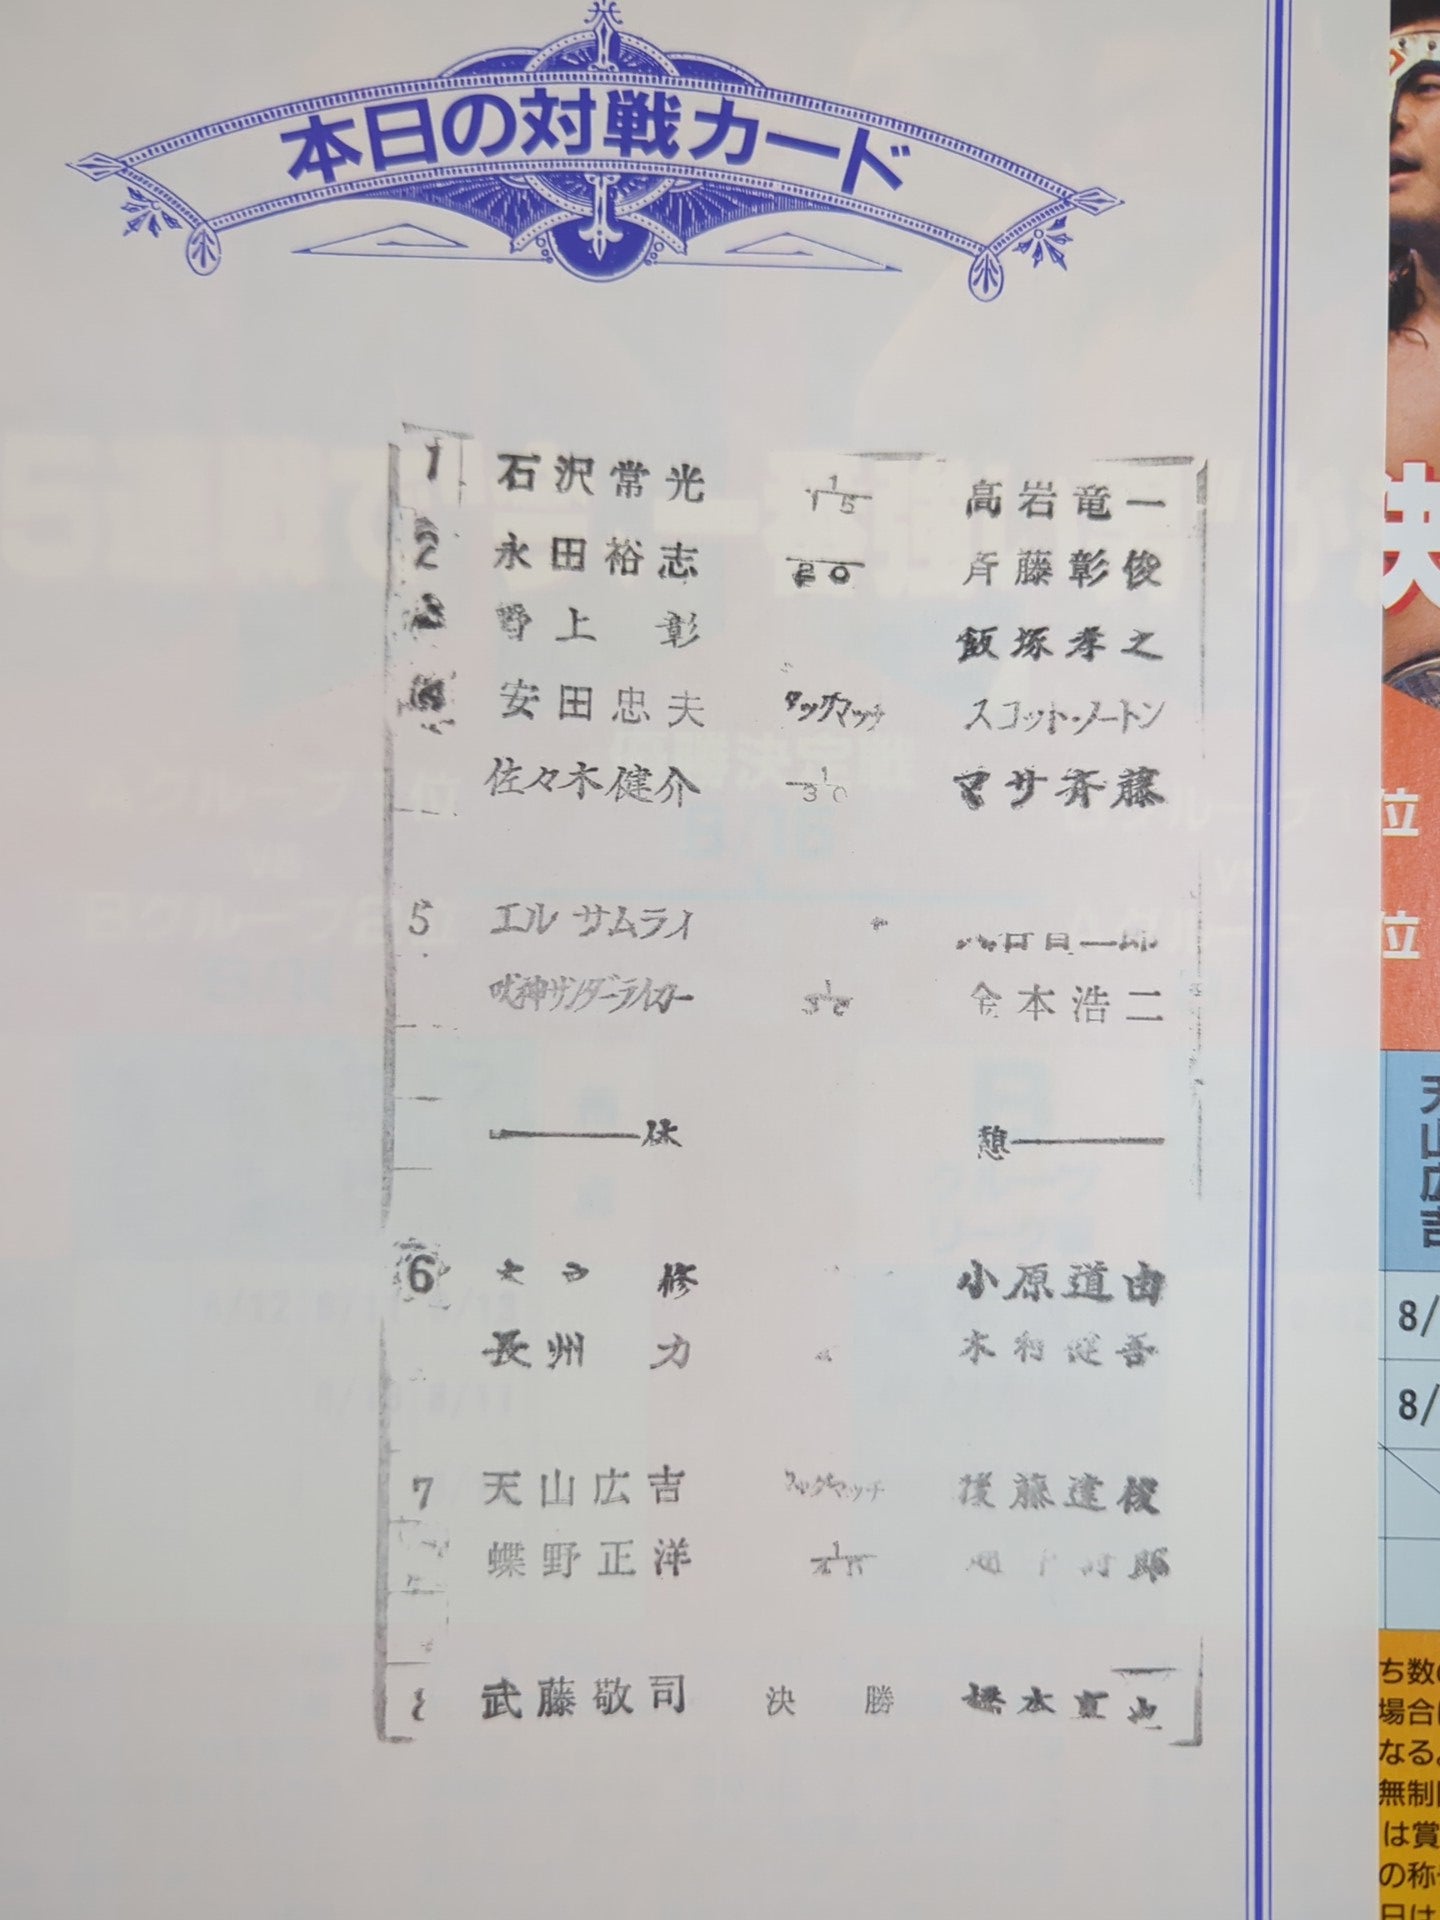 本日の対戦カード
1 石沢常光 1 15 高岩竜一
2 永田裕志 20 斉藤彰俊
3 野上 彰 飯塚孝之
4 安田忠夫 タッグマッチ スコット・ノートン
佐々木健介 1 30 マサ斉藤
5 エル サムライ
獣神サンダーライガー 1 30 金本浩二
休 憩
6 修 小原道由
長州 力 木村健吾
7 天山広吉 タッグマッチ 後藤達俊
蝶野正洋 1 郎
武藤敬司 決 勝 橋本真也
決
位
位
天山広吉
8/
8/
ち数の
場合は
なる。
無制
は賞
の称
日は